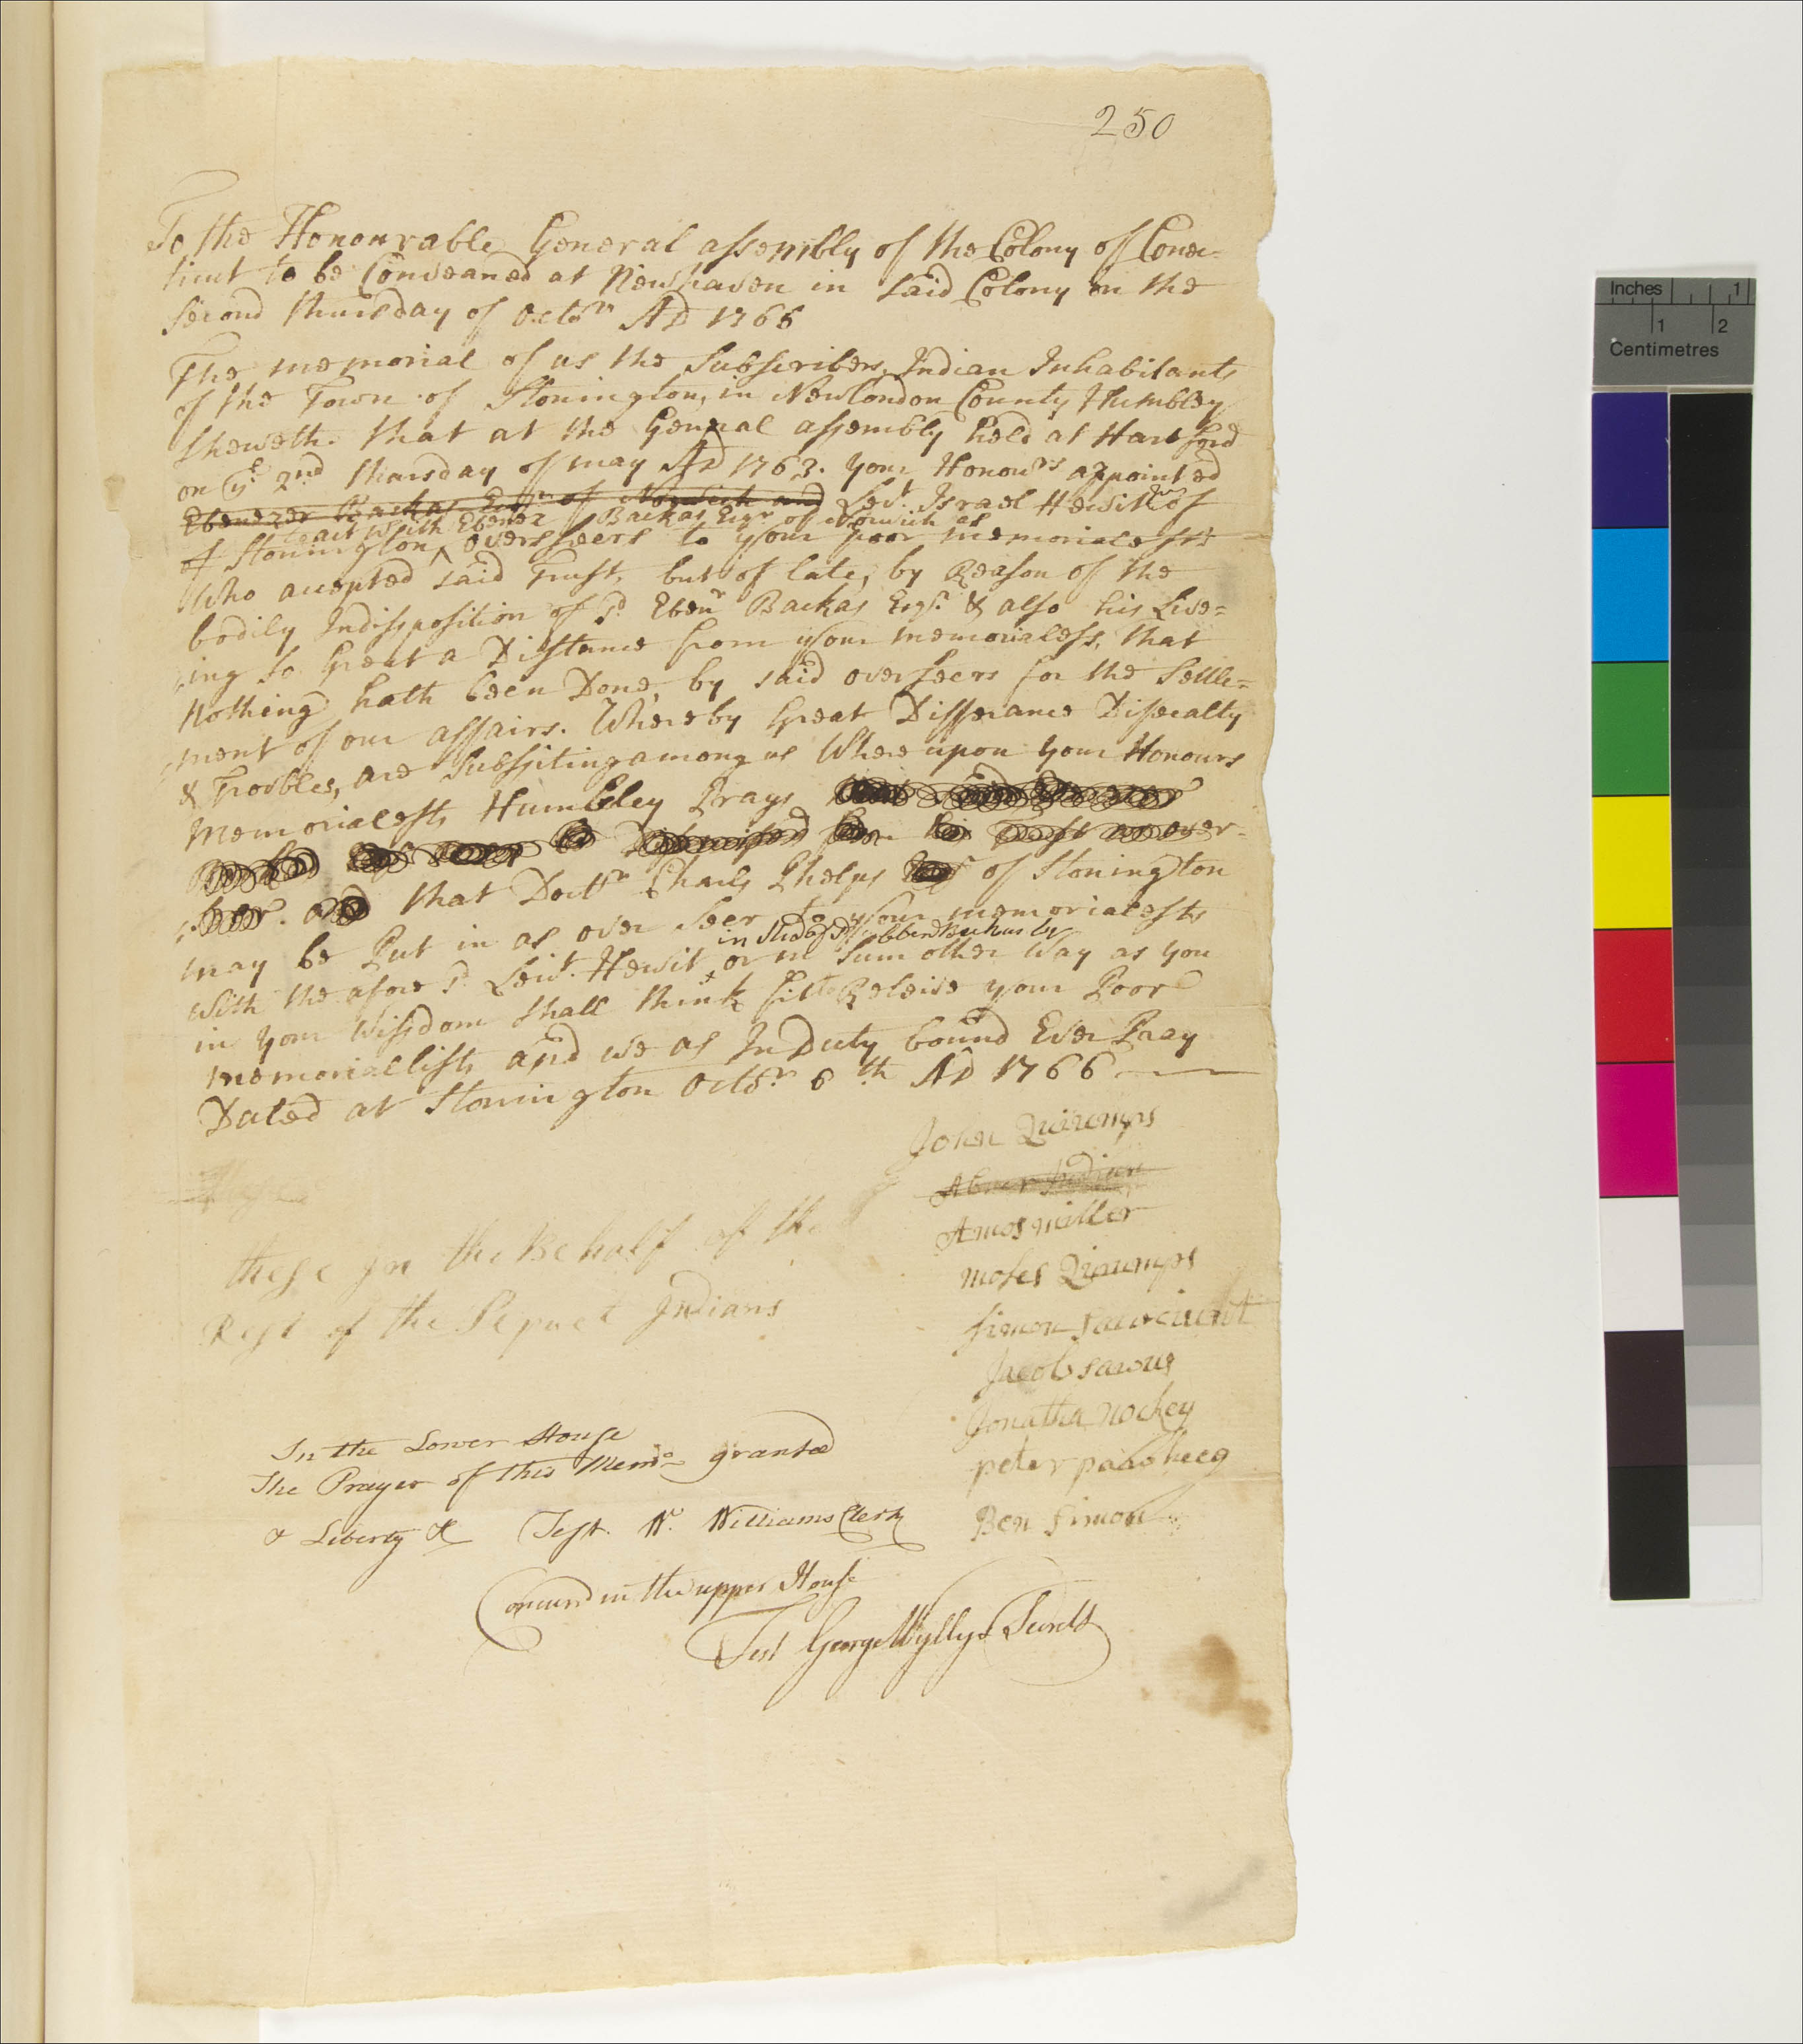 250
To the Honourable General assembly of the Colony of Conec=
ticut to be Conveaned at Newhaven in said Colony on the
second thursday of Octobr AD 1766
The memorial of us the Subscribers, Indian Inhabitants
of the Town of Stonington, in New London County Humbley
sheweth. that at the General assembly held at Hartford
on ye 2nd thursday of may AD 1763. your Honours appointed
Ebenezer Backas Esqr of Norwich and Leut. Israel Hewit of
to act with Ebenez Backas Esqr of Norwich as
of Stonington, ‸ overseers to your poor memorialests
Who accepted said Trust, but of late, by Reason of the
bodily Indisposition of sd. Ebenr Backas Esqr. & also his Live=
ing so Great a Distance from your memorialess, that
Nothing hath been Done, by said overseers for the Settle=
ment of our affairs. Whereby Great Differance Diffecalty
& Troubles, are Subssiting among us Where upon your Honours
Memorialests Humbley Prays
Dismised from his Trust as over-
seer. and that Docttr Charls Phelps of Stonington
may be Put in as over seer to your memorialests
in Sted of sd Ebben Backus by
with the afore sd. Leut. Hewit, ‸ or in Sum other Way as you
in your Wissdom shall think fit to Releive your Poor
memoriallists and we as In Duty bound Ever Pray
Dated at Stonington Octobr. 6th AD 1766
John Quiumps
Abner Indian
Amos miller
these In the Behalf of the
moses Quiumps
Rest of the Pequet Indians
simon
Jacob sawus
Jonatha nockey
peter
Ben simon
In the Lower House
The Prayer of this Memo granted
& Liberty &c Test. Wm. Williams Clerk
Concurd in the upper House
Test George Wyllys Secrety
Inches 1
1 2
Centimetres